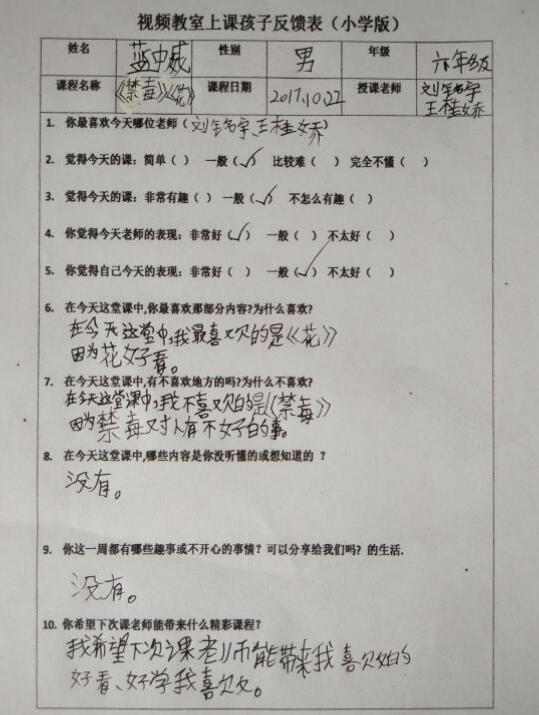 视频教室上课孩子反馈表（小学版）
姓名 蓝中威 性别 男 年级 六年级
课程名称 《禁毒》《花》 课程日期 2017.10.22 授课老师 刘年名宇 王桂娇
1. 你最喜欢今天哪位老师（刘年名宇、王桂娇）
2. 觉得今天的课：简单（ ） 一般（✓） 比较难（ ） 完全不懂（ ）
3. 觉得今天的课：非常有趣（ ） 一般（✓） 不怎么有趣（ ）
4. 你觉得今天老师的表现：非常好（✓） 一般（ ） 不太好（ ）
5. 你觉得自己今天的表现：非常好（ ） 一般（✓） 不太好（ ）
6. 在今天这堂课中,你最喜欢那部分内容?为什么喜欢?
在今天这堂中,我最喜欢的是《花》
因为花好看。
7. 在今天这堂课中,有不喜欢地方的吗?为什么不喜欢?
在今天这堂课中,我不喜欢的是《禁毒》
因为禁毒对人有不好的事。
8. 在今天这堂课中,哪些内容是你没听懂的或想知道的 ?
没有。
9. 你这一周都有哪些趣事或不开心的事情? 可以分享给我们吗? 的生活.
没有。
10. 你希望下次课老师能带来什么精彩课程?
我希望下次课老师能带来我喜欢的
好看、好学我喜欢。